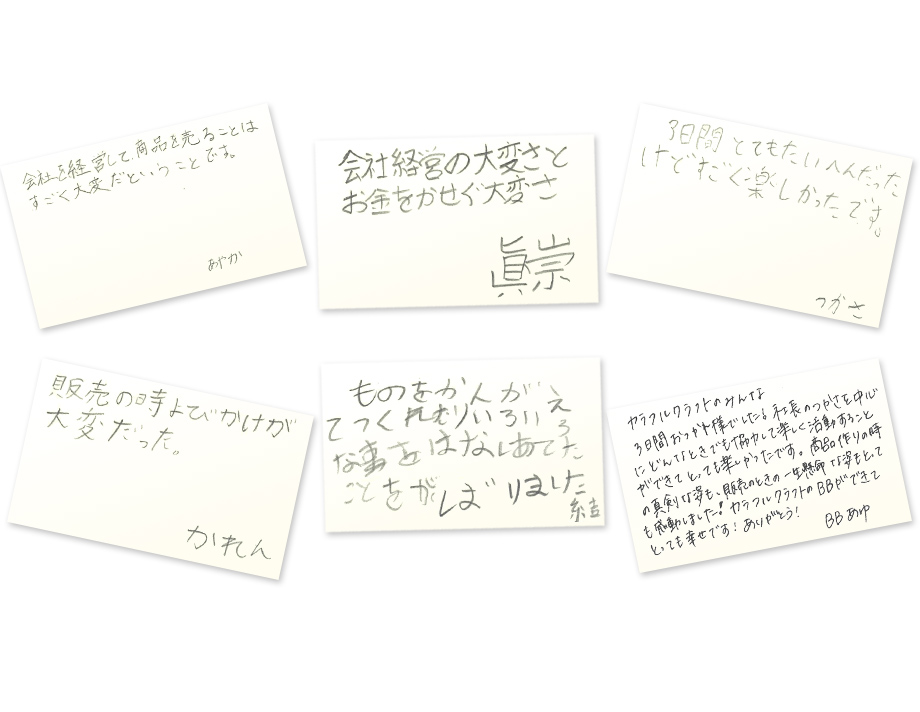 会社を経営して、商品を売ることは
すごく大変だということです。
あやか
会社経営の大変さと
お金をかせぐ大変さ
眞崇
3日間とてもたいへんだった
けどすごく楽しかったです。
つかさ
販売の時よびかけが
大変だった。
かれん
ものをかんがえ
てつくれむりいろいろ
な事をはなしあてた
ことをがんばりました
結
カラフルクラフトのみんな
3日間おつかれ様でした! 社長のつかさを中心
にどんなときでも協力して楽しく活動すること
ができてとっても楽しかったです。商品作りの時
の真剣な姿も、販売のときの一生懸命な姿もとって
も感動しました! カラフルクラフトのBBができて
とっても幸せです! ありがとう!
BBあゆ